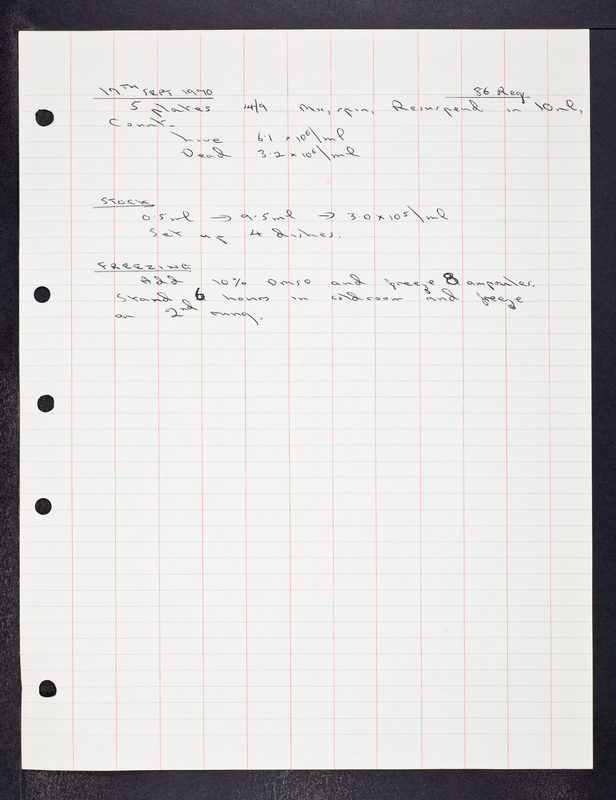 17TH SEPT 1970 86 Reg
5 plates 14/9 Mix, spin, Resuspend in 10ml,
Count.
Live 6.1 × 10⁶/ml
Dead 3.2 × 10⁶/ml
STOCK
0.5ml → 9.5ml → 3.0 × 10⁵/ml
Set up 4 dishes.
FREEZING
Add 10% DMSO and freeze 8 ampoules.
Stand 6 hours in cold room and freeze
on 2nd rung.